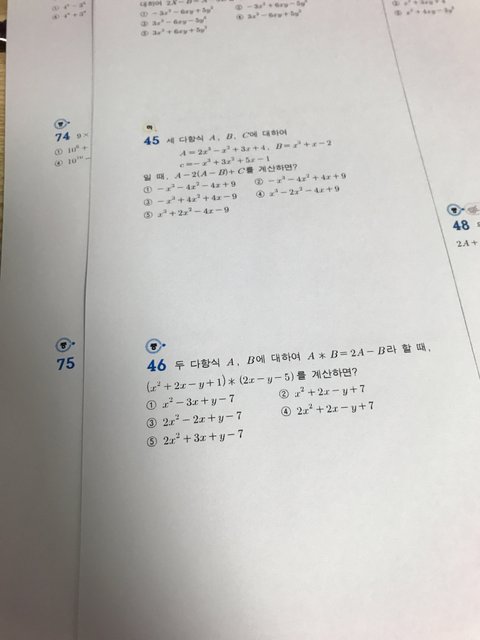 대하여
① -3x² - 6xy - 5y²
② -3x² + 6xy - 5y²
③ 3x² - 6xy - 5y²
④ 3x² - 6xy + 5y²
⑤ 3x² + 6xy + 5y²
74 9×
45 세 다항식 A, B, C에 대하여
A = 2x³ - x² + 3x + 4, B = x³ + x - 2
c = -x³ + 3x² + 5x - 1
일 때, A - 2(A - B) + C를 계산하면?
① -x³ - 4x² - 4x + 9
② -x³ - 4x² + 4x + 9
③ -x³ + 4x² + 4x - 9
④ x³ - 2x² - 4x + 9
⑤ x³ + 2x² - 4x - 9
48
2A +
75
46 두 다항식 A, B에 대하여 A * B = 2A - B라 할 때,
(x² + 2x - y + 1) * (2x - y - 5)를 계산하면?
① x² - 3x + y - 7
② x² + 2x - y + 7
③ 2x² - 2x + y - 7
④ 2x² + 2x - y + 7
⑤ 2x² + 3x + y - 7